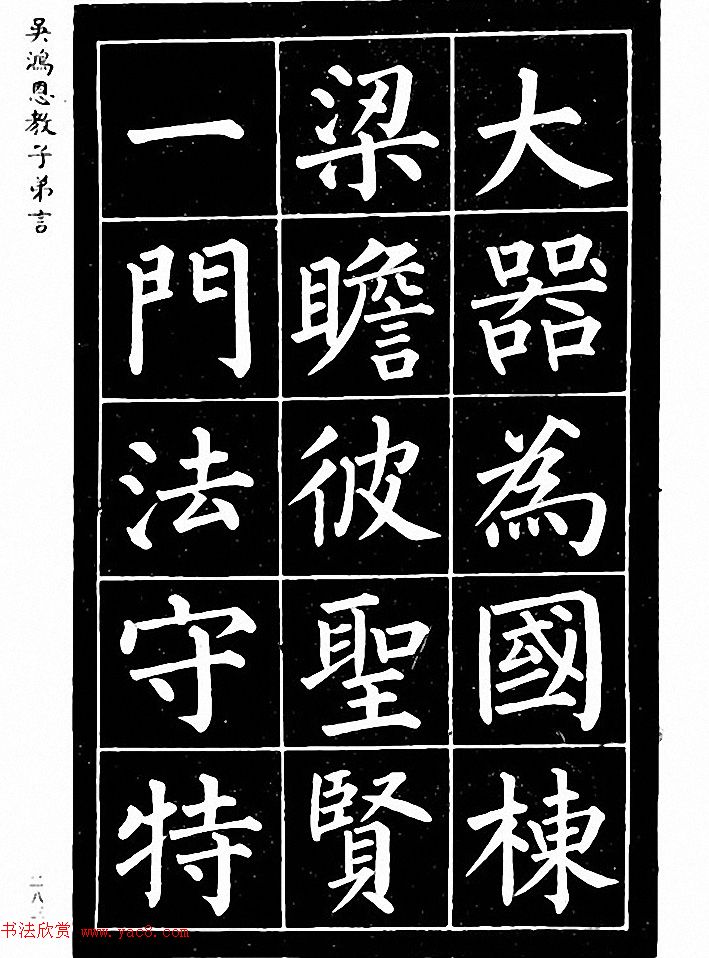 大器為國棟
梁瞻彼聖賢
一門法守特
吳鴻恩教子弟言
二八
书法欣赏 www.yac8.com